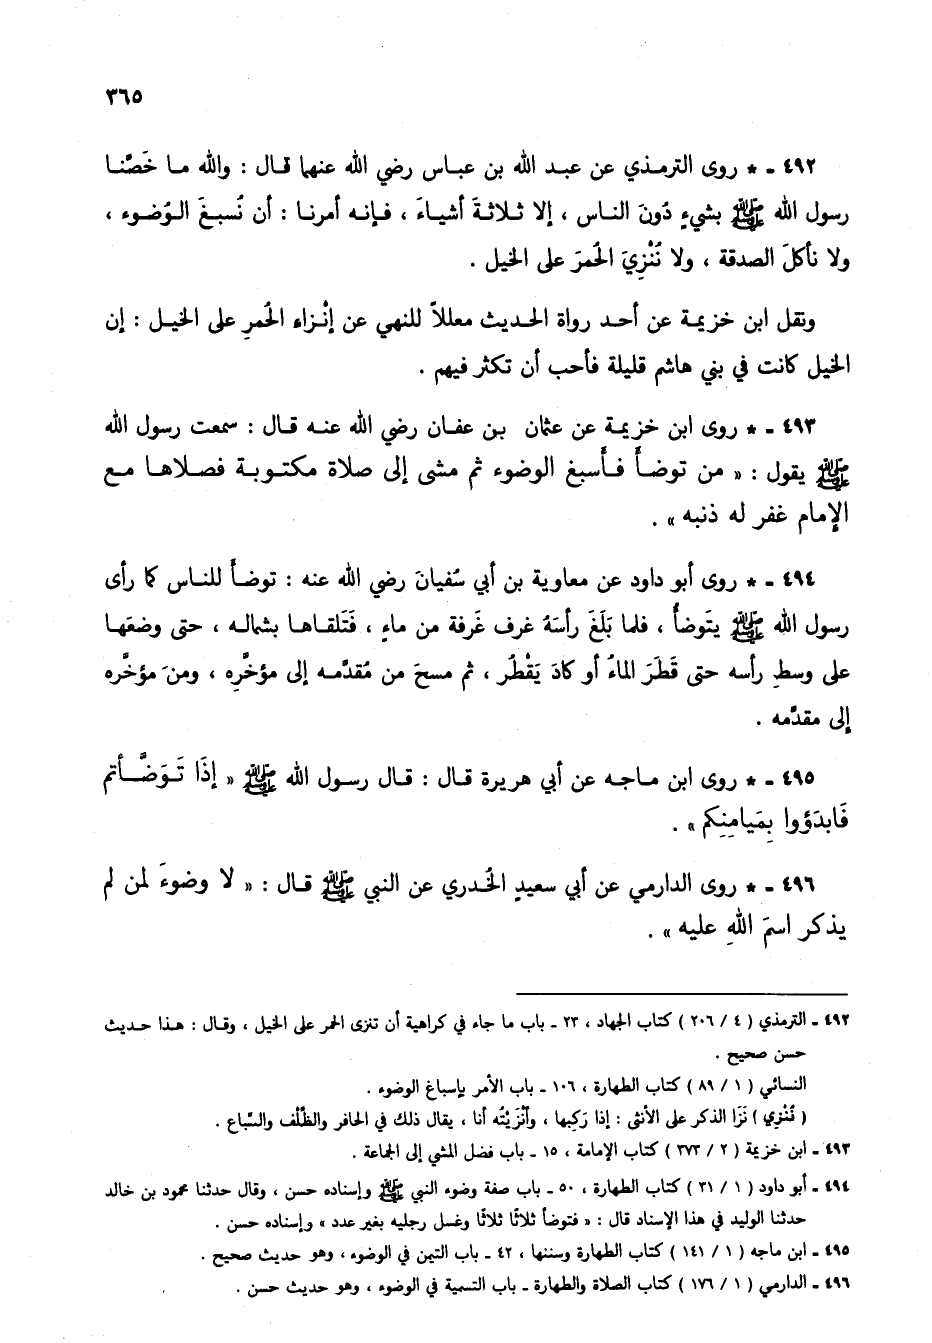 ٣٦٥
٤٩٢ - * روى الترمـذي عن عبـد الله بن عبـاس رضي الله عنهما قـال : والله مـا خَصَّنـا
رسول الله ﷺ بشيءٍ دُونَ النـاس ، إلا ثـلاثـةَ أشيـاءَ ، فـإنـه أمرنـا : أن نُسبغَ الـوُضوء ،
ولا نأكلَ الصدقة ، ولا نُنْزِيَ الحُمرَ على الخيل .
ونقل ابن خزيمـة عن أحـد رواة الحـديث معللاً للنهي عن إنْـزاء الحُمرِ على الخيـل : إن
الخيل كانت في بني هاشم قليلة فأحب أن تكثر فيهم .
٤٩٣ - * روى ابن خزيمـة عن عثمان بـن عفـان رضي الله عنـه قـال : سمعت رسول الله
ﷺ يقول : « من توضـأ فـأسبغ الوضوء ثم مشى إلى صلاة مكتـوبـة فصـلاهـا مـع
الإمام غفر له ذنبه » .
٤٩٤ - * روى أبو داود عن معاوية بن أبي سُفيانَ رضي الله عنه : توضـأ للنـاس كما رأى
رسول الله ﷺ يتَوضأُ ، فلما بَلَغَ رأسَهُ غرف غَرفة من ماءٍ ، فَتَلقـاهـا بشمالـه ، حتى وضعَهـا
على وسطِ رأسه حتى قَطَرَ الماءُ أو كادَ يَقْطُر ، ثم مسحَ من مُقدَّمـه إلى مؤخَّرِه ، ومنَ مؤخَّره
إلى مقدَّمه .
٤٩٥ - * روى ابن مـاجـه عن أبي هريرة قـال : قـال رسـول الله ﷺ « إذَا تَـوَضَّـأتم
فَابدَؤوا بِمَيامِنِكم » .
٤٩٦ - * روى الدارمي عن أبي سعيدٍ الخُـدري عن النبي ﷺ قـال : « لا وضوءَ لمن لم
يذكر اسمَ اللهِ عليه » .
٤٩٢ - الترمذي ( ٤ / ٢٠٦ ) كتاب الجهاد ، ٢٣ - باب ما جاء في كراهية أن تنزى الحمر على الخيل ، وقـال : هـذا حـديث
حسن صحيح .
النسائي ( ١ / ٨٩ ) كتاب الطهارة ، ١٠٦ - باب الأمر بإسباغ الوضوء .
( نُنْزِي ) نَزَا الذكر على الأنثى : إذا رَكِبها ، وأنْزَيْتُه أنا ، يقال ذلك في الحافر والظِّلْف والسِّباع .
٤٩٣ - ابن خزيمة ( ٢ / ٣٧٣ ) كتاب الإمامة ، ١٥ - باب فضل المشي إلى الجماعة .
٤٩٤ - أبو داود ( ١ / ٣١ ) كتاب الطهارة ، ٥٠ - باب صفة وضوء النبي ﷺ وإسناده حسن ، وقال حدثنا محمود بن خالد
حدثنا الوليد في هذا الإسناد قال : « فتوضأ ثلاثًا ثلاثًا وغسل رجليه بغير عدد » وإسناده حسن .
٤٩٥ - ابن ماجه ( ١ / ١٤١ ) كتاب الطهارة وسننها ، ٤٢ - باب التيمن في الوضوء ، وهو حديث صحيح .
٤٩٦ - الدارمي ( ١ / ١٧٦ ) كتاب الصلاة والطهارة - باب التسمية في الوضوء ، وهو حديث حسن .